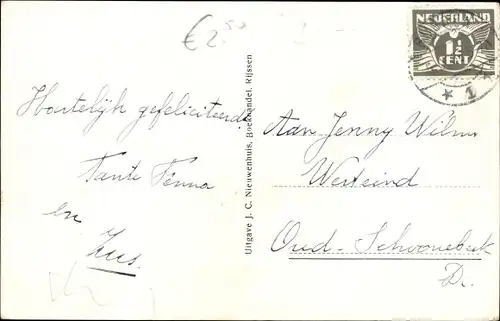 €2.50
NEDERLAND
1½
CENT
1
Hartelijk gefeliciteerd,
Tante Fenna
en
Zus.
Uitgave J. C. Nieuwenhuis, Boekhandel, Rijssen
Aan Jenny Wilms
Westeind
Oud-Schoonebeek
Dr.